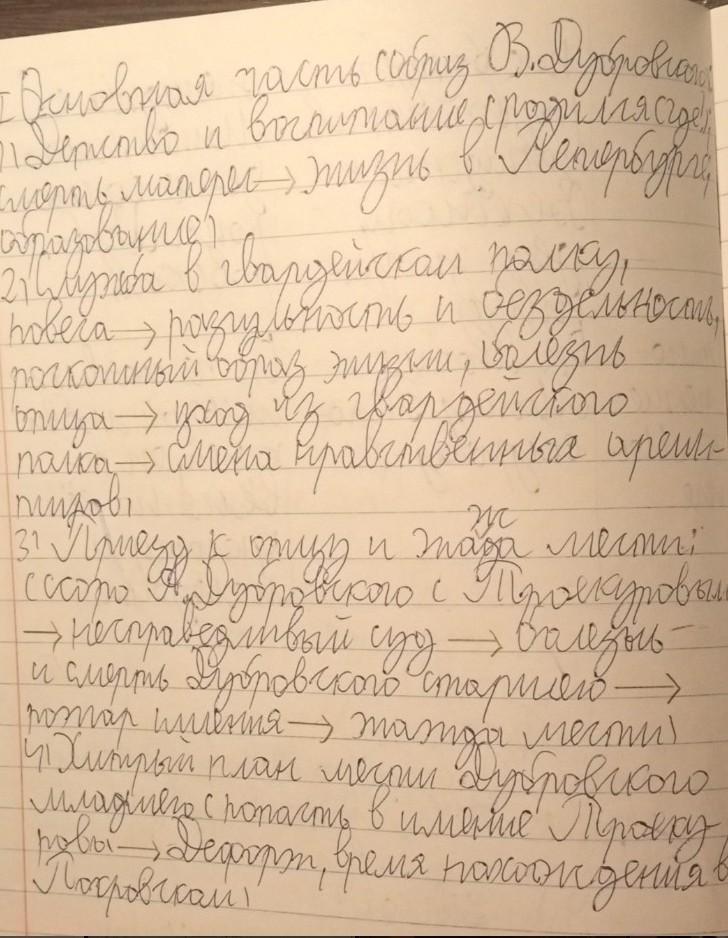 I Основная часть (образ В. Дубровского:
1) Детство и воспитание (родился где),
смерть матери → жизнь в Петербурге,
образование)
2) Служба в гвардейском полку,
повеса → разгульность и бездельность,
роскошный образ жизни, болезнь
отца → уход из гвардейского
полка → смена нравственных ориен-
тиров)
ж
3) Приезд к отцу и жажда мести:
ссора А. Дубровского с Троекуровым
→ несправедливый суд → болезнь
и смерть Дубровского старшего →
пожар имения → жажда мести)
4) Хитрый план мести Дубровского
младшего (попасть в имение Троеку-
ровы → Дефорж, время нахождения в
Покровском)